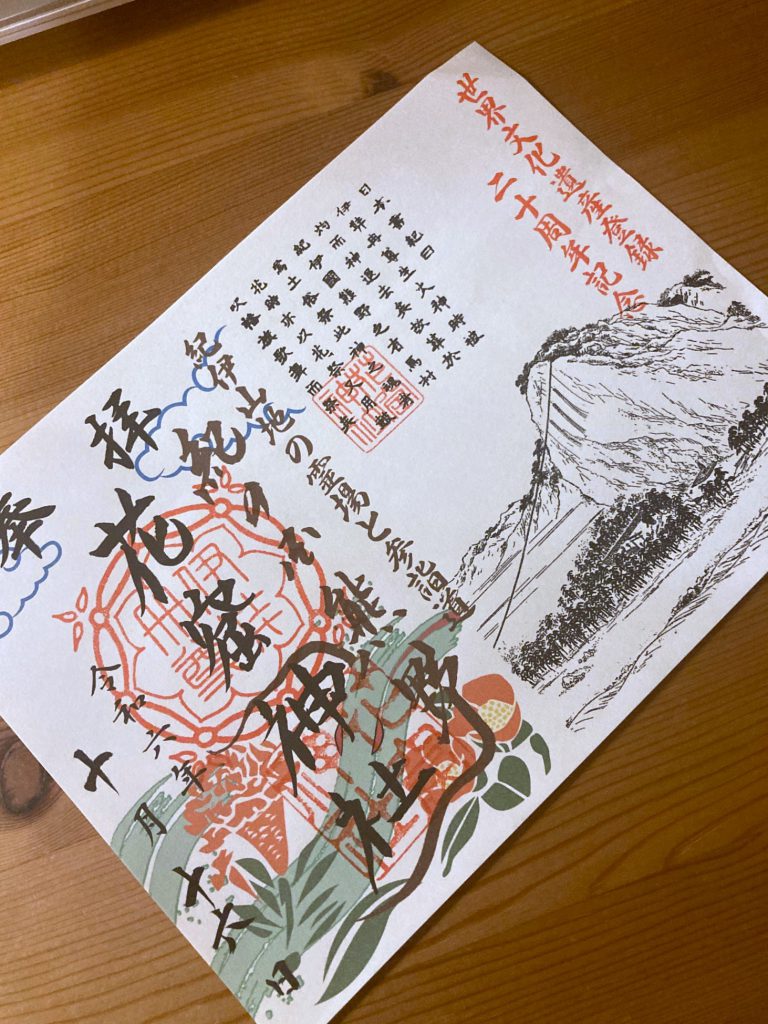 世界文化遺産登録
二十周年記念
日本書紀曰
伊弉冉尊生火神時被
灼而神退去矣故葬於
紀伊國熊野之有馬村
焉土俗祭此神之魂者
花時亦以花祭又用鼓
吹幡旗歌舞而祭矣
紀伊山地の霊場と参詣道
紀乃国熊野
花窟神社
奉拝
令和六年
十月十六日